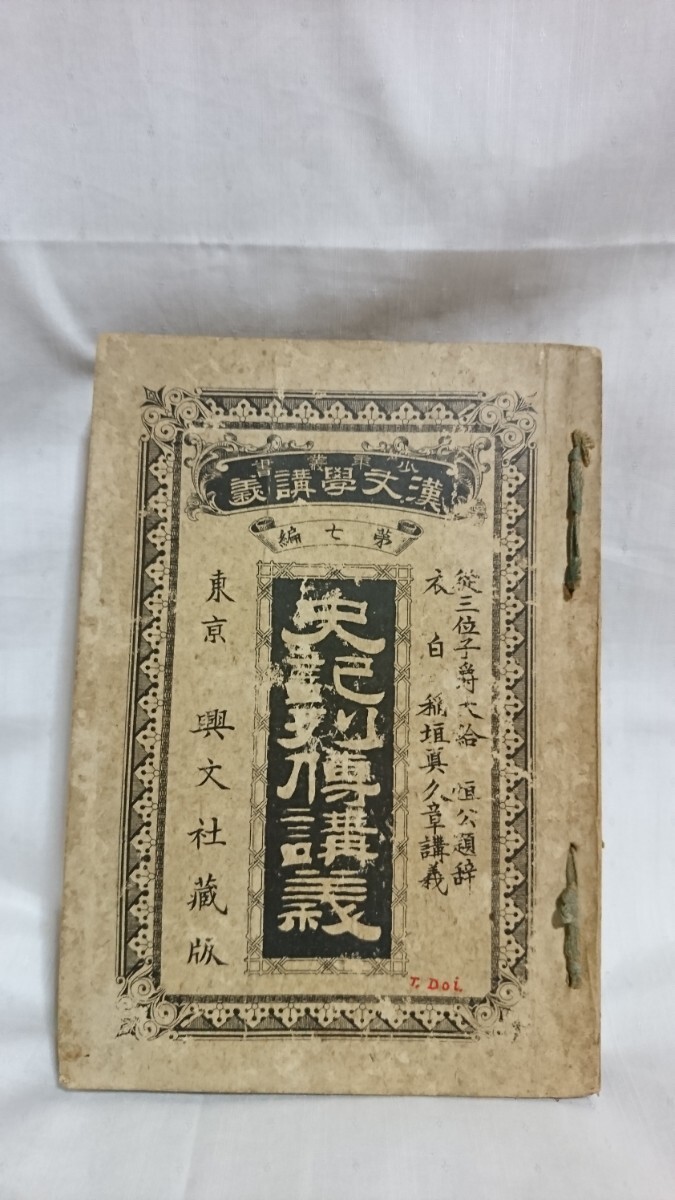 少年叢書
漢文學講義
第七編
從三位子爵大給恒公題辞
衣白 稲垣眞久章講義
史記列傳講義
東京 興文社藏版
T. Doi.